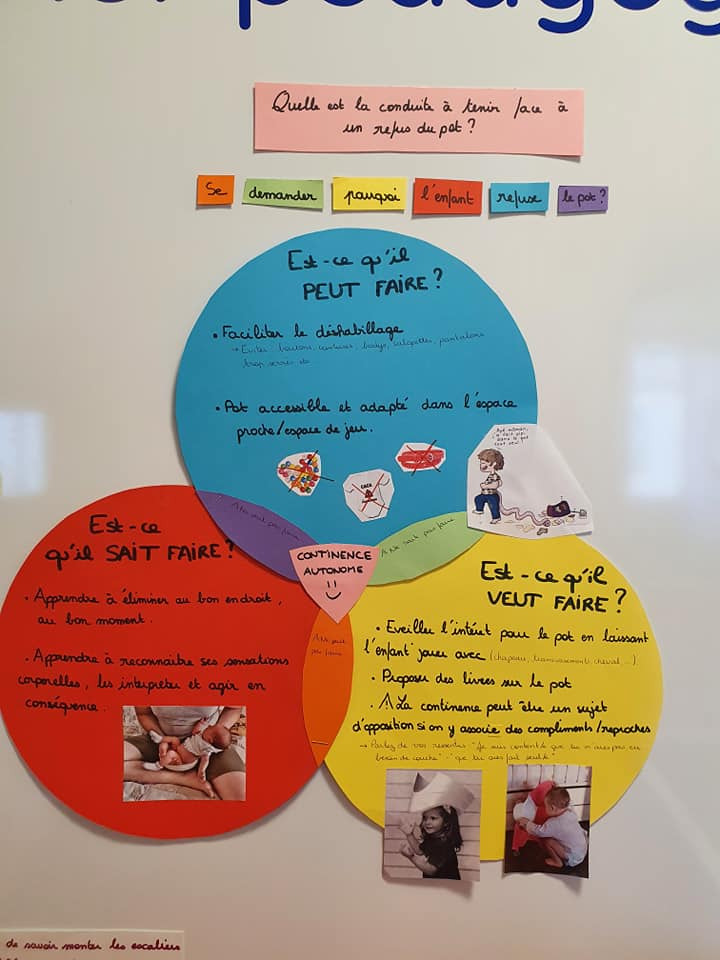 Quelle est la conduite à tenir face à
un refus du pot ?
Se demander pourquoi l'enfant refuse le pot ?
Est-ce qu'il
PEUT FAIRE ?
• Faciliter le déshabillage
→ Eviter boutons, ceintures, bodys, salopettes, pantalons
trop serrés, etc
• Pot accessible et adapté dans l'espace
proche/espace de jeu.
CACA
⚠ Ne veut pas faire
⚠ Ne sait pas faire
CONTINENCE
AUTONOME
!!
Est-ce
qu'il SAIT FAIRE ?
• Apprendre à éliminer au bon endroit,
au bon moment.
• Apprendre à reconnaitre ses sensations
corporelles, les interpréter et agir en
conséquence.
⚠ Ne peut
pas faire
Est-ce qu'il
VEUT FAIRE ?
• Eveiller l'intérêt pour le pot en laissant
l'enfant jouer avec (chapeau, transvasement, cheval, ...).
• Proposer des livres sur le pot
• ⚠ La continence peut être un sujet
d'opposition si on y associe des compliments/reproches
→ Parlez de vos ressentis "Je suis content(e) que tu n'aies pas eu
besoin de couche" "que tu aies fait
de savoir monter les escaliers